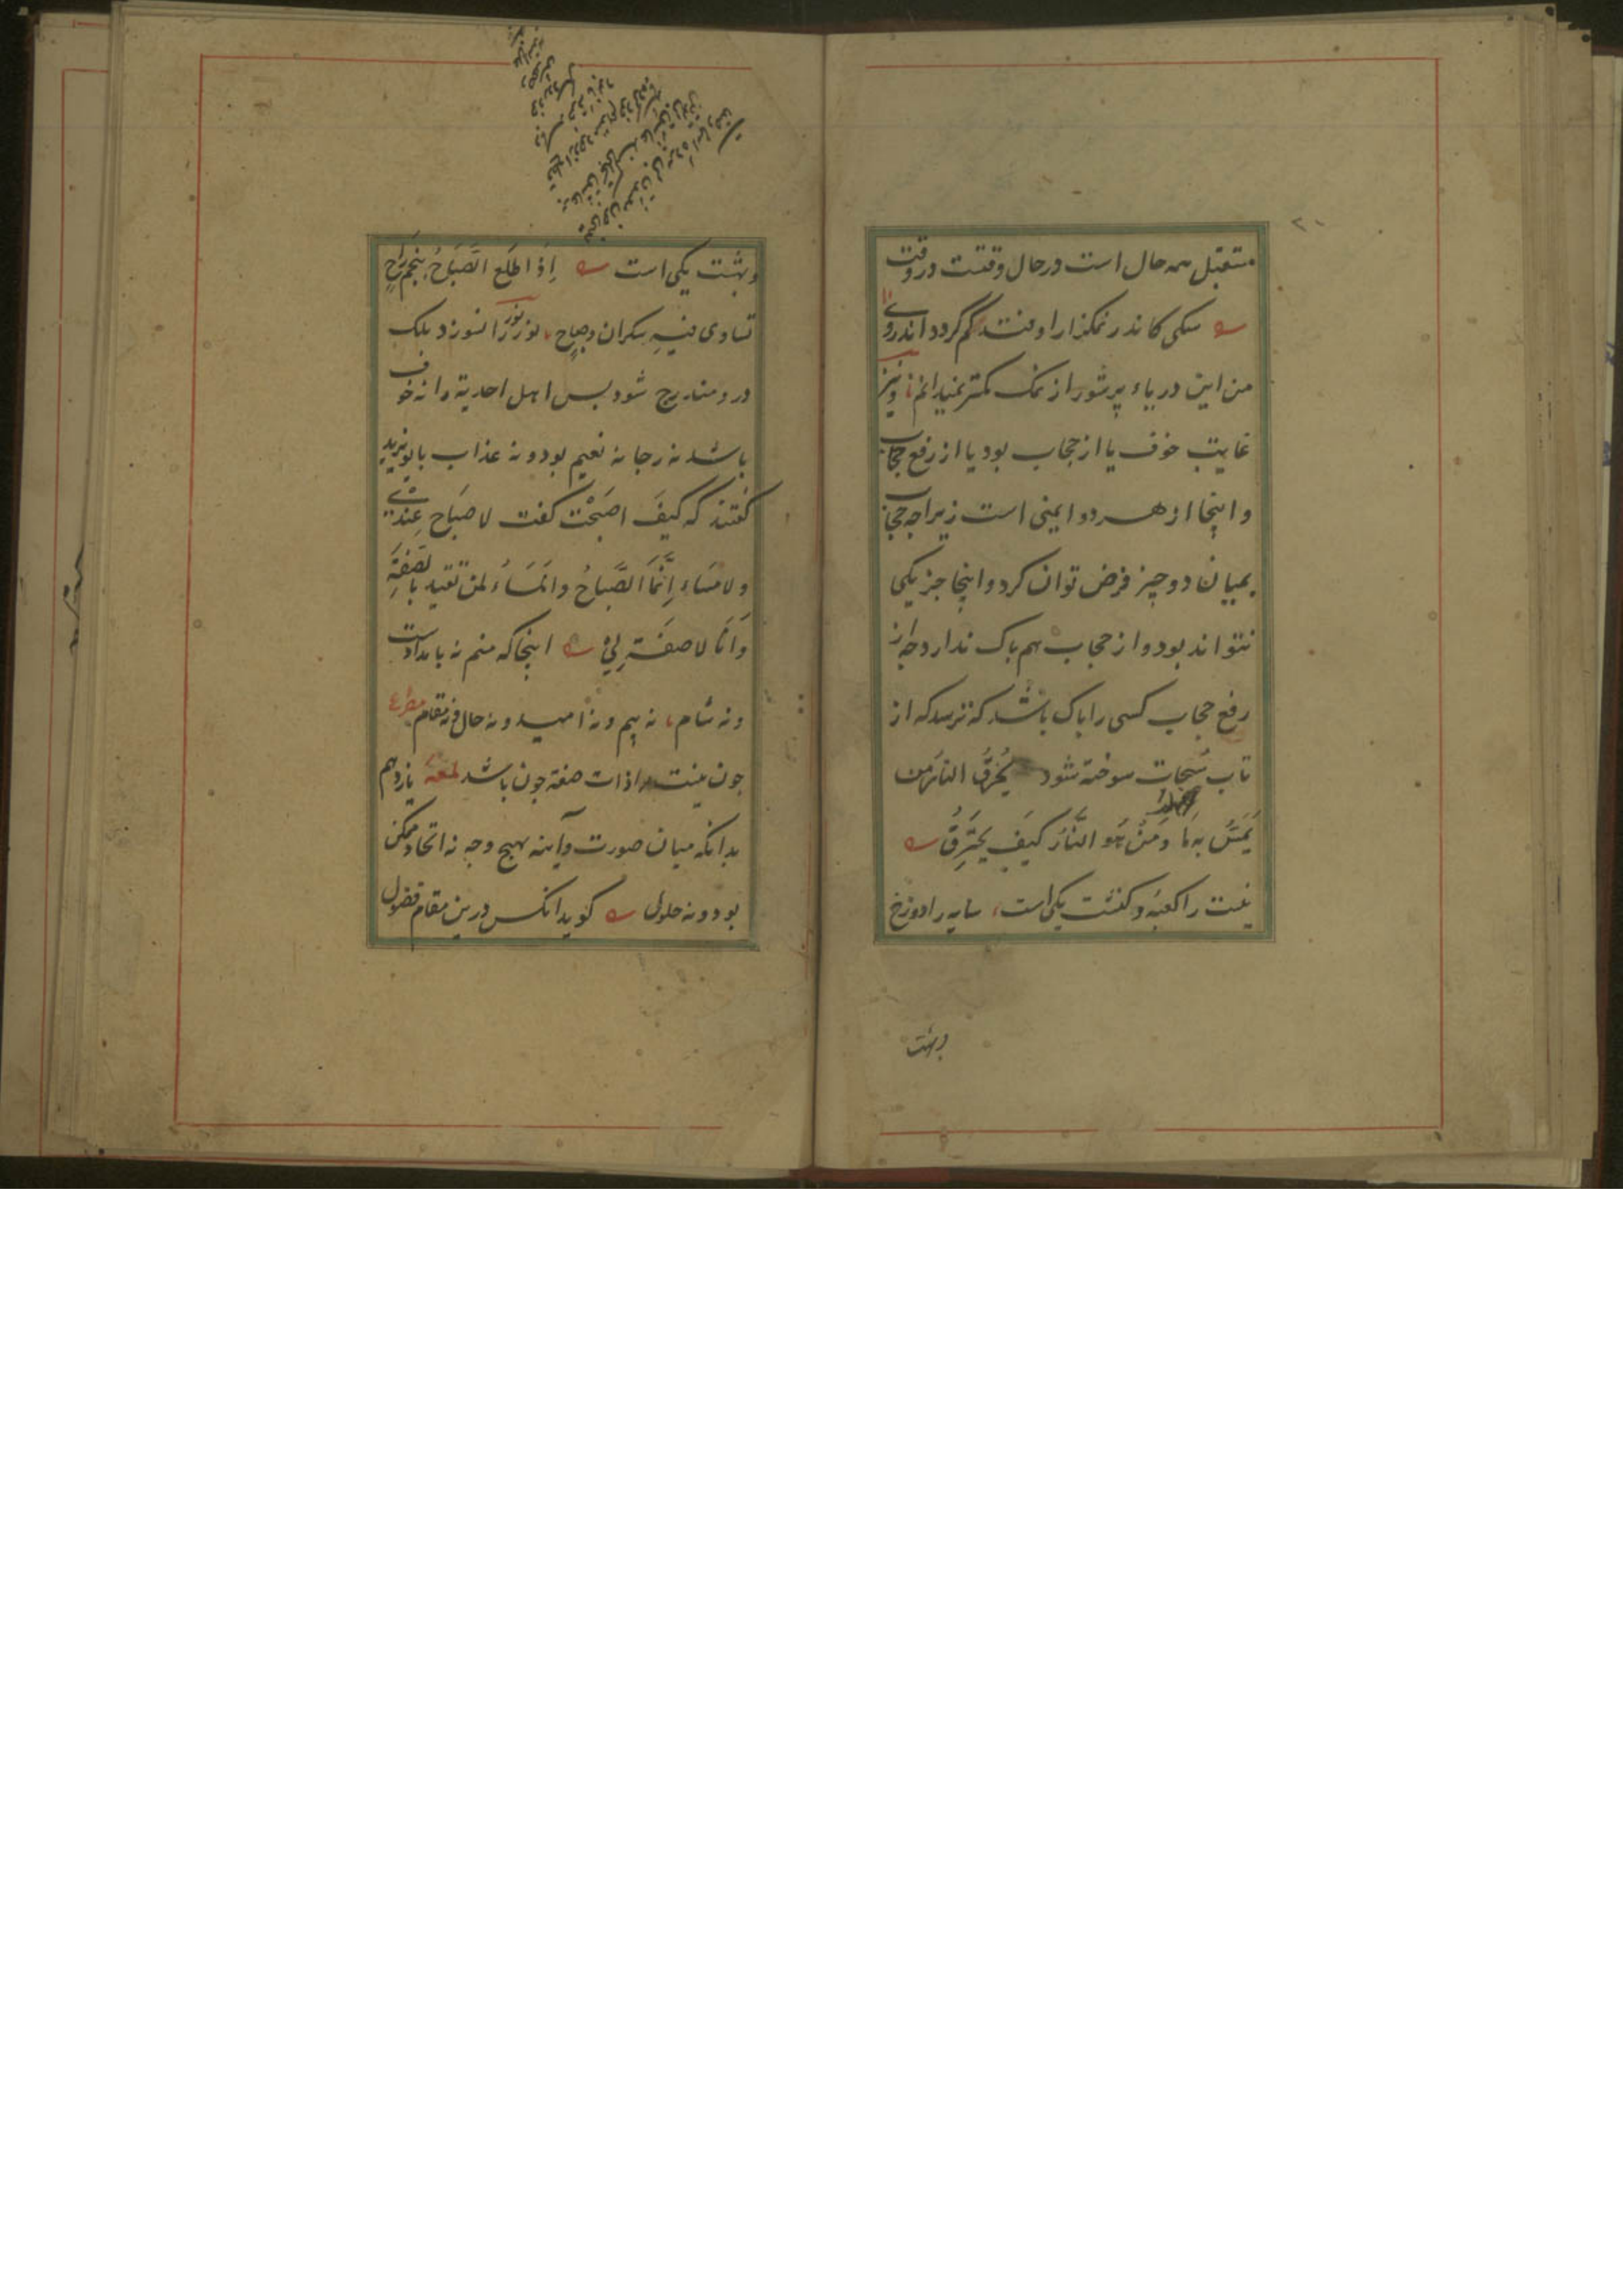 مستقبل همه حال است در حال وقتست در وقت
سکی کاندر نمکزار اوفتد کم کردد اندروی
من این دریاء پر شور از نمک کمتر نمیدانم ونیز
غایت خوف یا از حجاب بود یا از رفع حجاب
واینجا از هردو ایمنی است زیرا چه حجاب
بمیان دو چیز فرض توان کرد واینجا جز یکی
نتواند بود واز حجاب هم باک ندارد چه از
رفع حجاب کسی را باک باشد که ترسد که از
تاب سُبحات سوخته شود یُحْرِقُ النَّارُ مَن
یَمَسُّ بِهَا وَمَنْ هُوَ النَّارُ کَیْفَ یَحْتَرِقُ
نیست را کعبه و کنشت یکی است سایه را دوزخ
وبهشت
وبهشت یکی است اِذَا طَلَعَ الصَّبَاحُ بِنَجْمِ رَاحٍ
تساوی فیهِ سکران وصاحٍ نور نور را نسوزد بلک
درو مندرج شود بس اهل احدیة را نه خوف
باشد نه رجا نه نعیم بود ونه عذاب بایزید
گفتند که کَیفَ اصبَحْتَ کفت لا صَبَاح عِندِی
ولا مَسَاء اِنَّمَا الصَّبَاحُ والمَسَاءُ لمَن تقید بالصِّفَةِ
وَاَنَا لا صفَةَ لِی اینجا که منم نه بامدادست
ونه شام نه بیم ونه امید ونه حال ونه مقام مصراع
جون نیست را ذات صفة جون باشد لمعه یازدهم
بدانکه میان صورت وآینه بهیج وجه نه اتحاد ممکن
بود ونه حلول کوید انکس درین مقام فضول